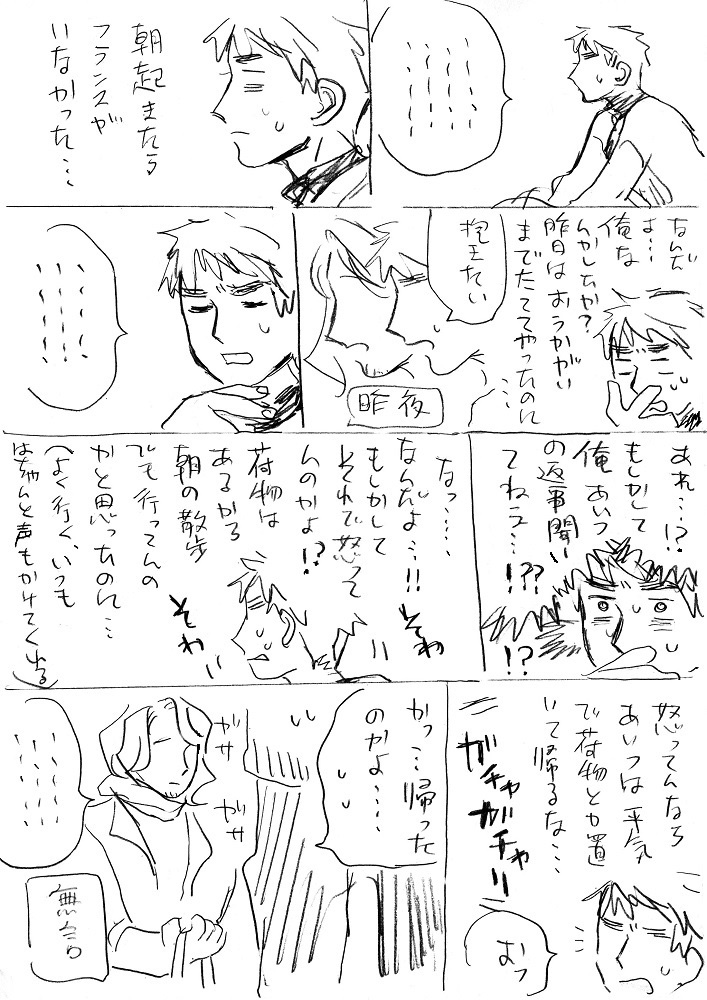 朝起きたら
フランスが
いなかった…
なんだ
よ…
俺な
んかしたか?
昨日はおうかがい
までたててやったのに
…
抱きたい
昨夜
あれ…!?
もしかして
俺あいつ
の返事聞い
てねぇ…!?
!?
なっ……
なんだよ…!!
もしかして
それで怒って
んのかよ!?
荷物は
あるから
朝の散歩
でも行ってんの
かと思ったのに…
(よく行く、いつも
はちゃんと声もかけてくれる)
そわ
そわ
怒ってんなら
あいつは平気
で荷物とか置
いて帰るな…
ガチャガチャリ
おっ
かっ…帰った
のかよ……
ガサ
ガサ
無言